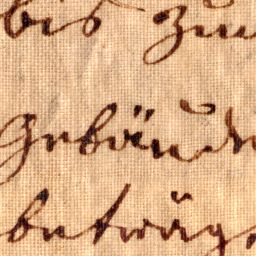 bis zum
Gebäude
beträg